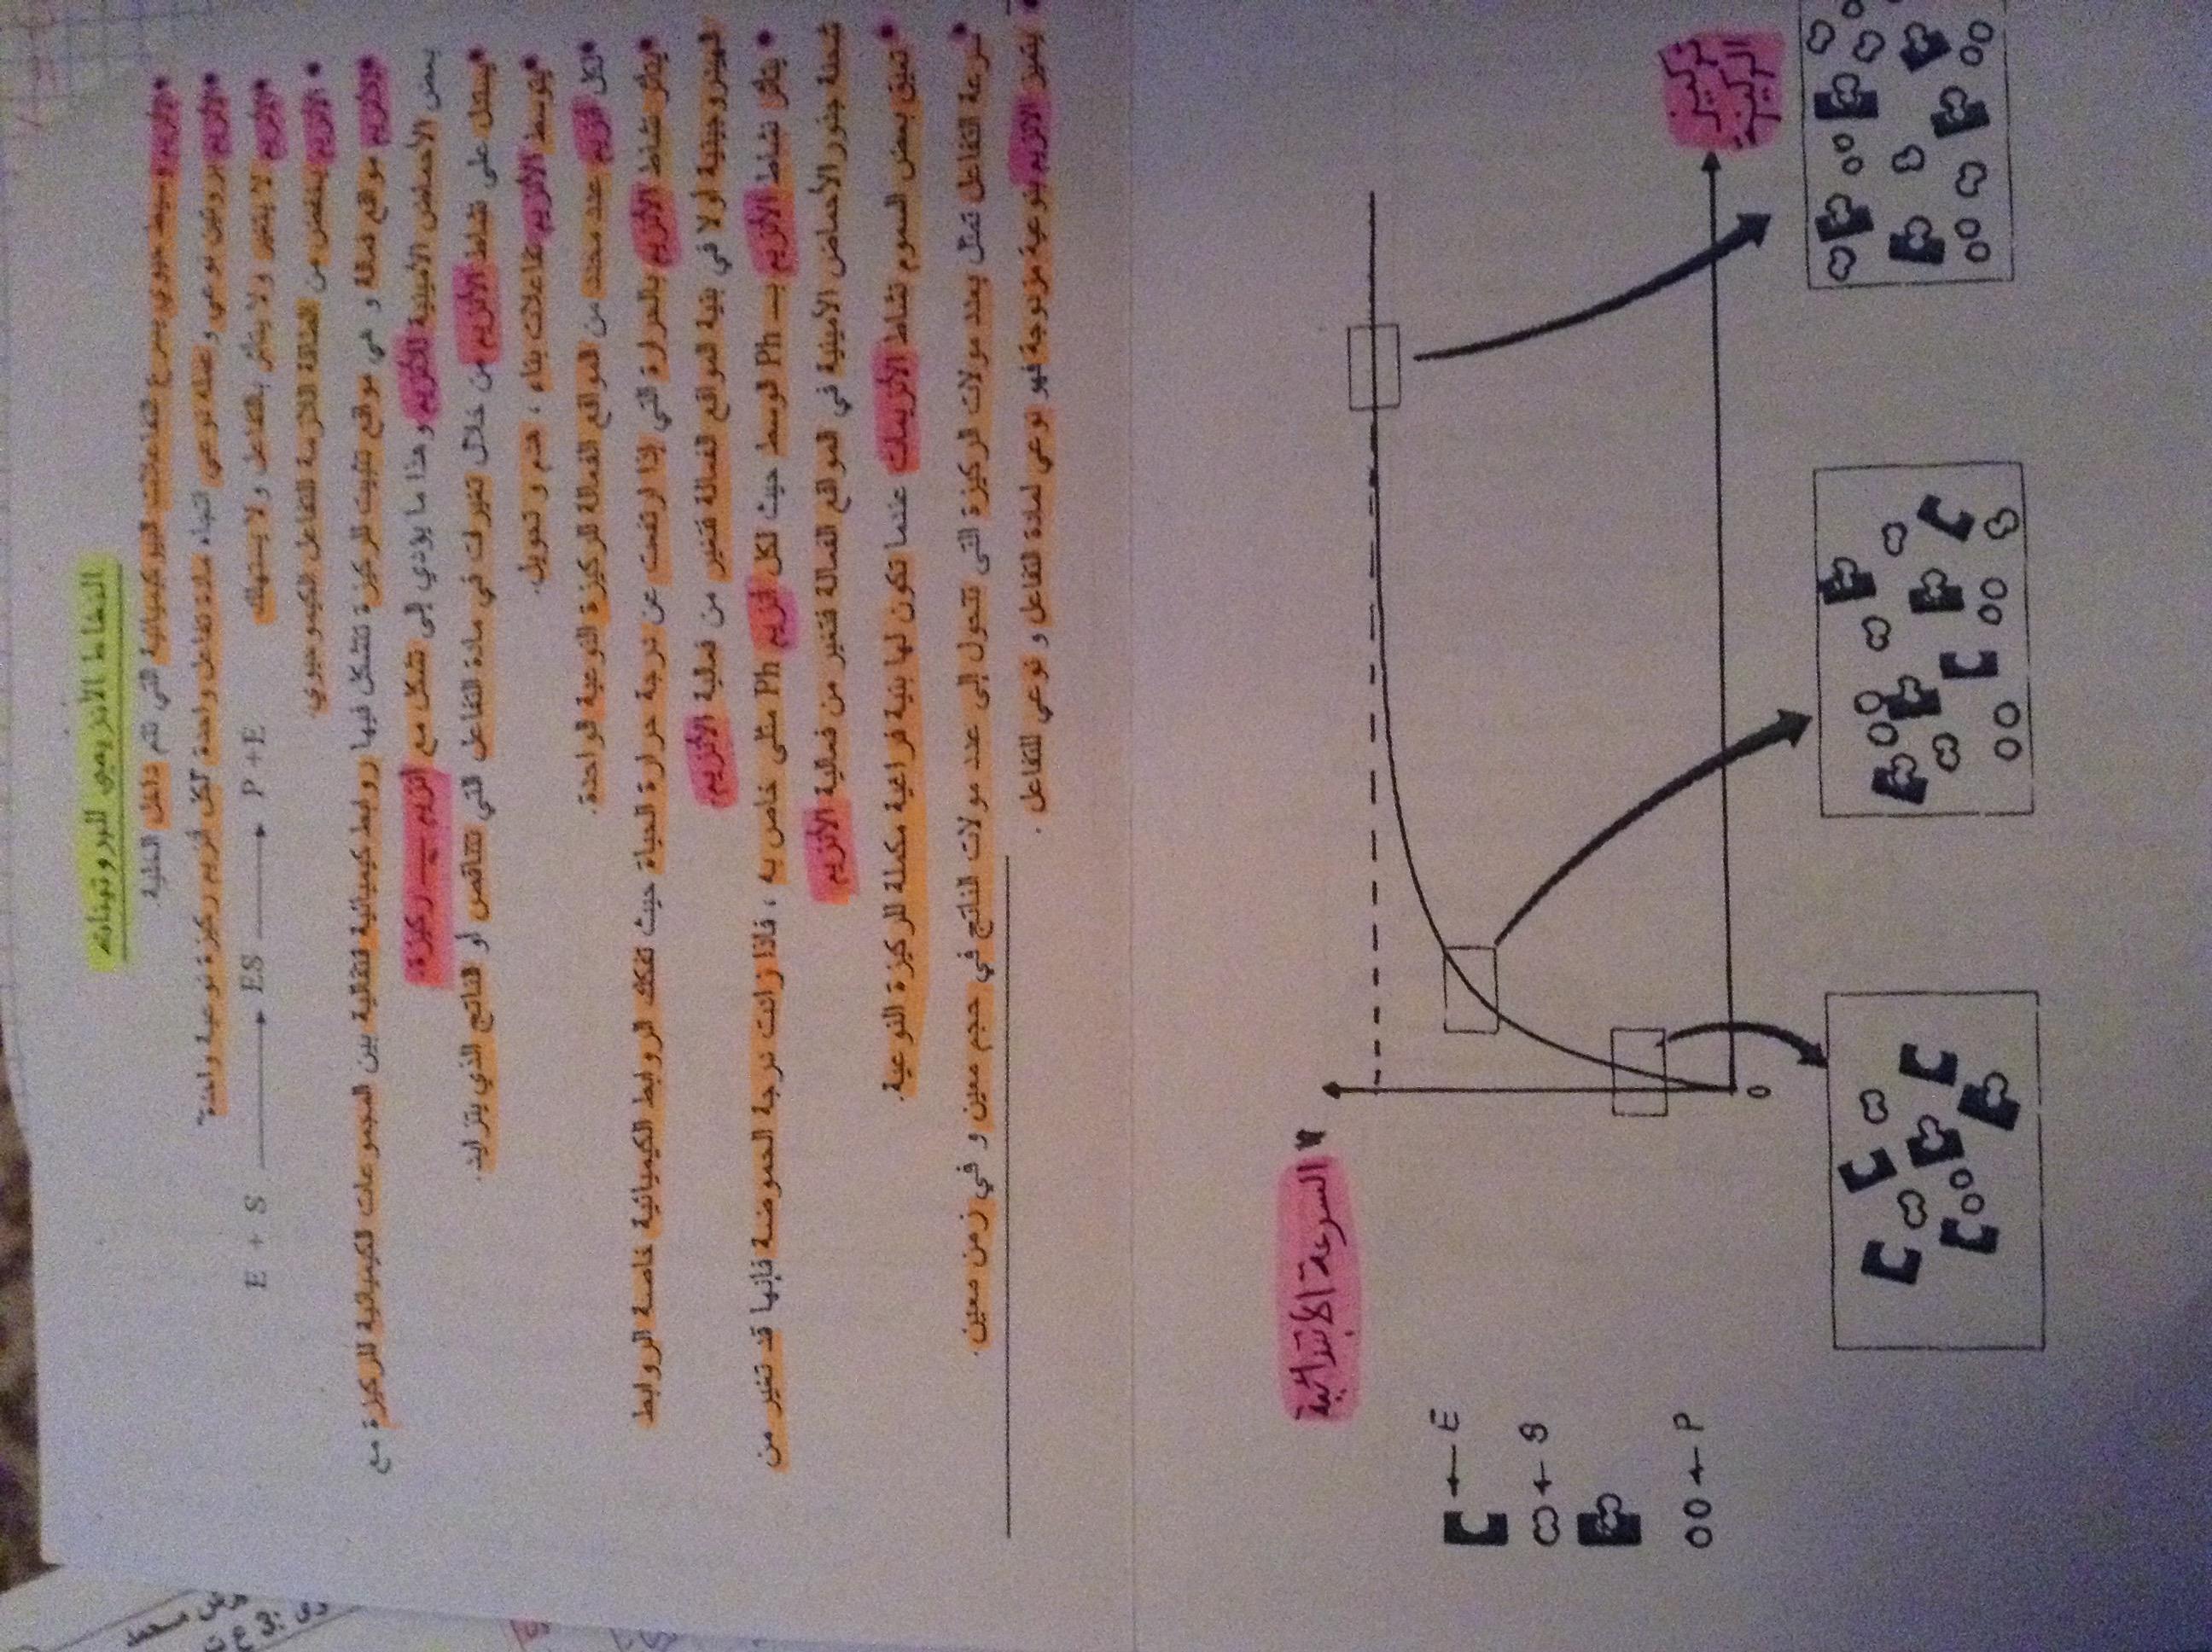 النشاط الأنزيمي للبروتينات
• الأنزيم وسيط حيوي يسرع التفاعلات البيوكيميائية التي تتم داخل الخلية.
• الأنزيم بروتين نوعي و عمله نوعي اتجاه مادة تفاعل واحدة لكل أنزيم ركيزة نوعية واحدة"
• الأنزيم لا يتغير ولا يتأثر بالتفاعل ولا يستهلك
E + S → ES → P +E
• الأنزيم يخفض من الطاقة اللازمة للتفاعل الكيموحيوي.
• للأنزيم مواقع فعالة و هي مواقع تثبيت الركيزة تتشكل فيها روابط كيميائية انتقالية بين المجموعات الكيميائية للركيزة مع
بعض الأحماض الأمينية للأنزيم وهذا ما يؤدي إلى تشكل مع أنزيم ــ ركيزة.
• يستدل على نشاط الأنزيم من خلال تغيرات في مادة التفاعل التي تتناقص أو الناتج الذي يتزايد.
• يتوسط الأنزيم تفاعلات بناء ، هدم و تحويل.
• لكل أنزيم عدد محدد من المواقع الفعالة للركيزة النوعية الواحدة.
• يتأثر نشاط الأنزيم بالحرارة التي إذا ارتفعت عن درجة حرارة الحياة حيث تفكك الروابط الكيميائية خاصة الروابط
الهيدروجينية أولا في بنية المواقع الفعالة فتغير من فعالية الأنزيم.
• يتأثر نشاط الأنزيم بــ Ph الوسط حيث لكل أنزيم Ph مثلى خاص به ، فإذا زادت درجة الحموضة فإنها قد تغير من
شحنة جذور الأحماض الأمينية في المواقع الفعالة فتغير من فعالية الأنزيم
• تعيق بعض السموم نشاط الأنزيمات عندما تكون لها بنية فراغية مكملة للركيزة النوعية.
• سرعة التفاعل تمثل بعدد مولات الركيزة التي تتحول إلى عدد مولات الناتج في حجم معين و في زمن معين.
• يتميز الأنزيم بنوعية مزدوجة فهو نوعي لمادة التفاعل و نوعي للتفاعل .
السرعة الابتدائية
تركيز
الركيزة
0
E
S
P